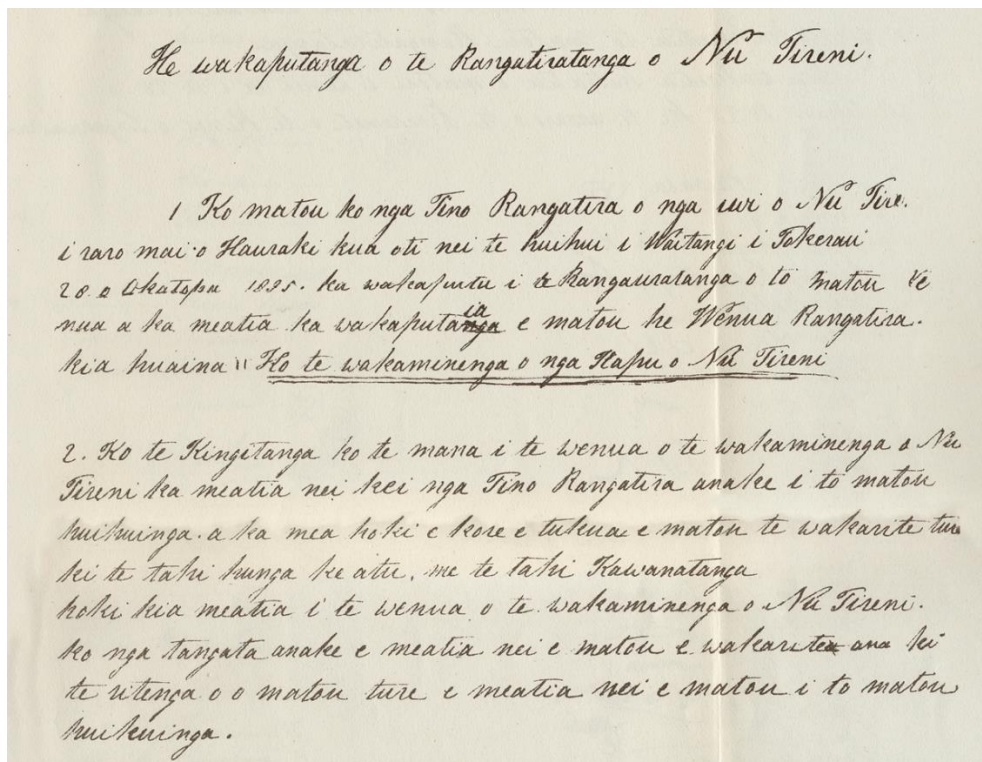 He wakaputanga o te Rangatiratanga o Nu Tireni.
1 Ko matou ko nga Tino Rangatira o nga iwi o Nu Tire.
i raro mai o Hauraki kua oti nei te huihui i Waitangi i Tokerau
28. o Okatopa 1835. ka wakaputa i te Rangatiratanga o to matou We
nua a ka meatia ka wakaputaia e matou he Wenua Rangatira.
kia huaina "Ko te wakaminenga o nga Hapu o Nu Tireni
2. Ko te Kingitanga ko te mana i te wenua o te wakaminenga o Nu
Tireni ka meatia nei kei nga Tino Rangatira anake i to matou
huihuinga. a ka mea hoki e kore e tukua e matou te wakarite ture
ki te tahi hunga ke atu, me te tahi Kawanatanga
hoki kia meatia i te wenua o te wakaminenga o Nu Tireni.
ko nga tangata anake e meatia nei e matou e wakarite ana ki
te ritenga o o matou ture e meatia nei e matou i to matou
huihuinga.